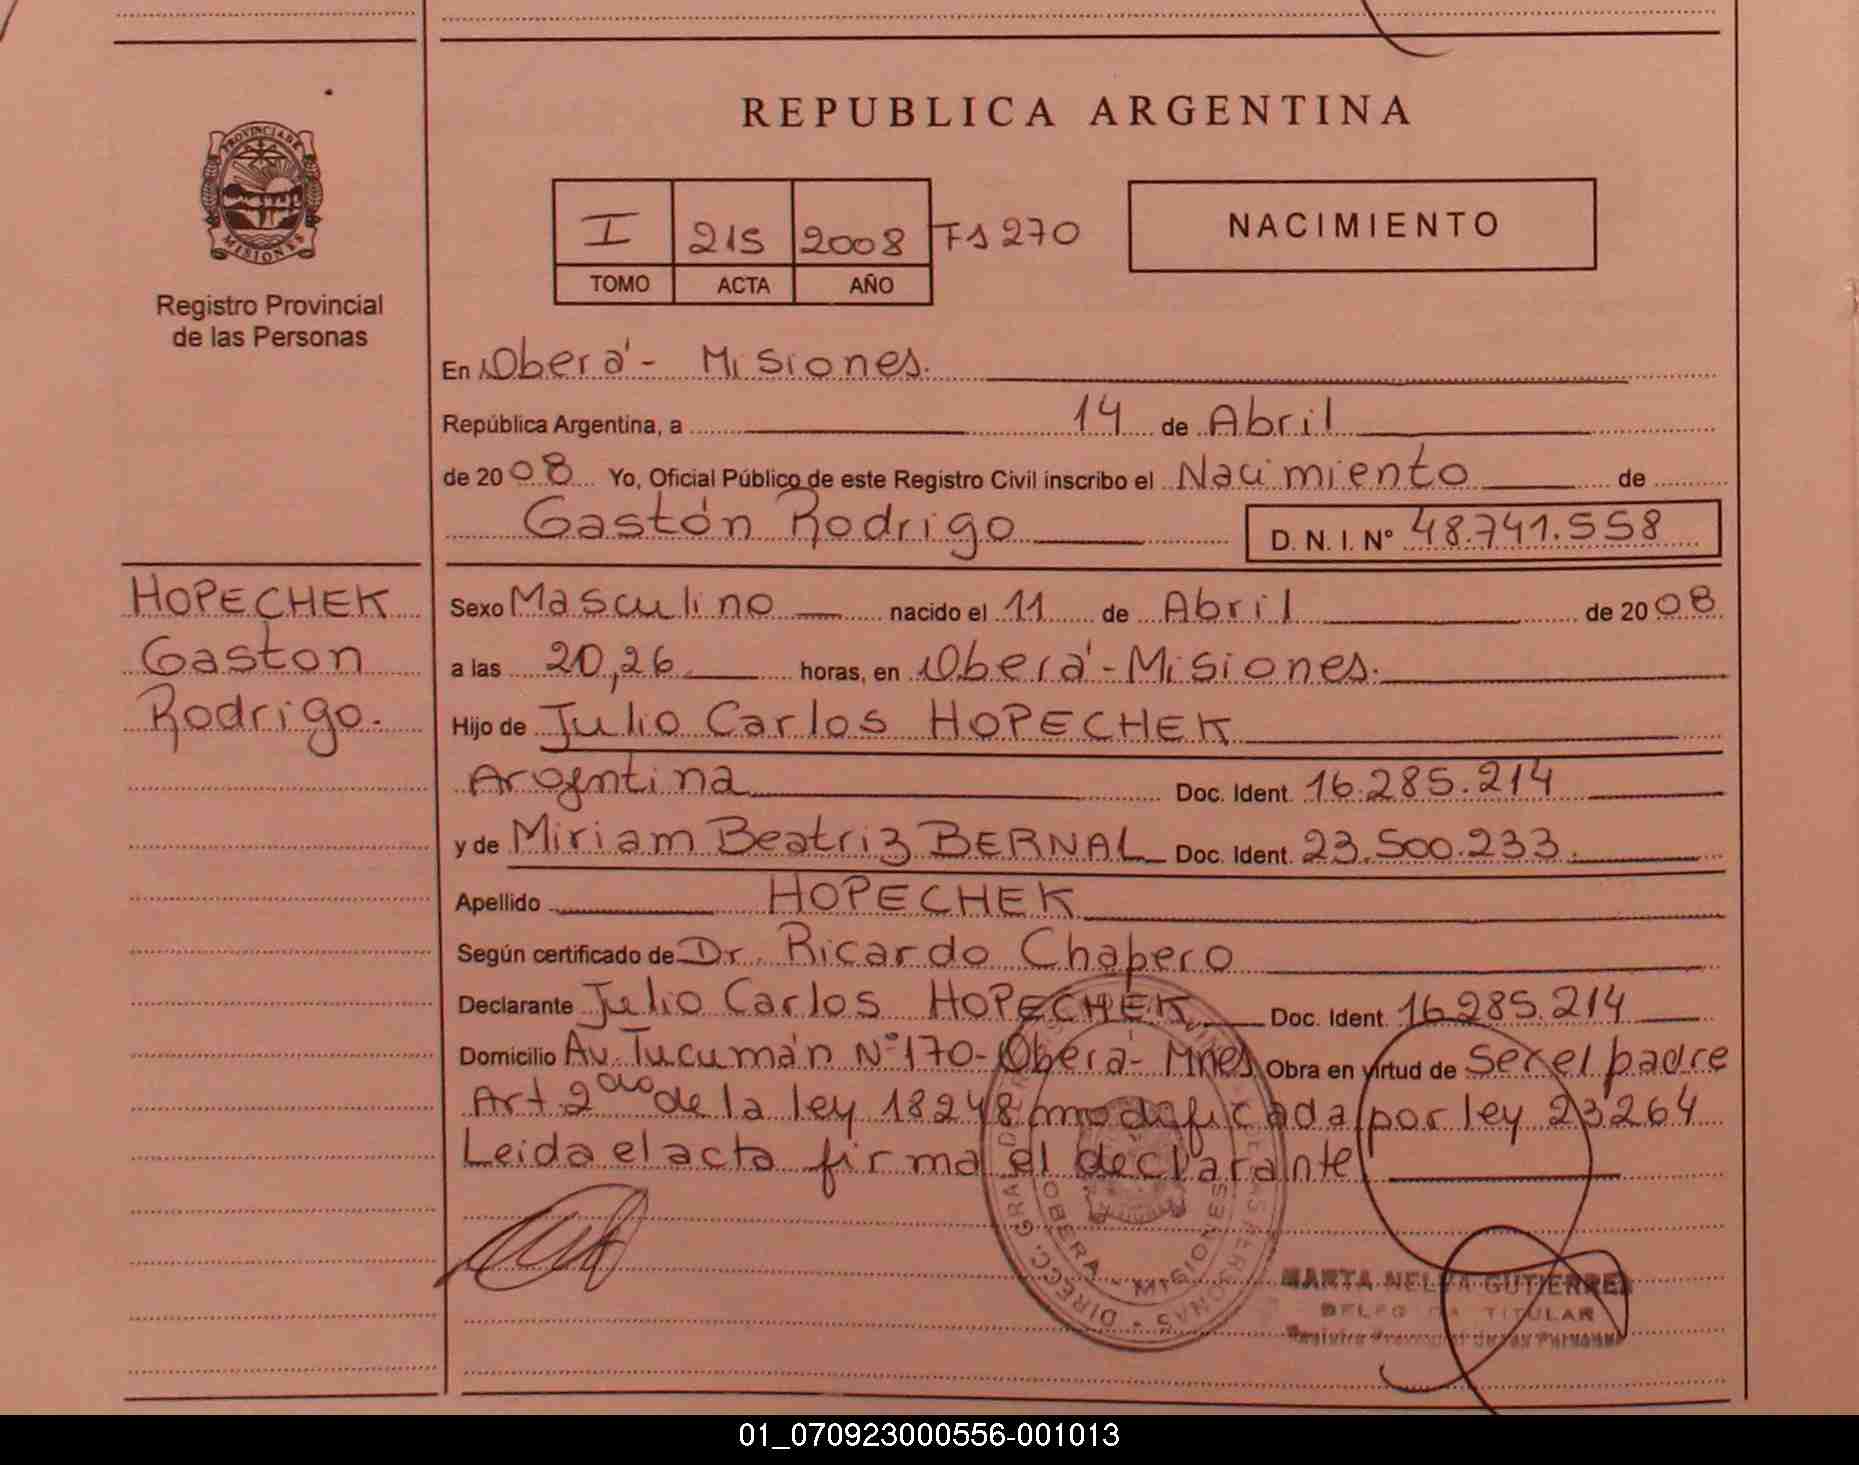 REPUBLICA ARGENTINA
PROVINCIA DE
MISIONES
Registro Provincial
de las Personas
I 215 2008 Fs 270
TOMO ACTA AÑO
NACIMIENTO
En Oberá - Misiones.
República Argentina, a 14 de Abril
de 2008 Yo, Oficial Público de este Registro Civil inscribo el Nacimiento de
Gastón Rodrigo D. N. I. N° 48.741.558
HOPECHEK
Gaston
Rodrigo.
Sexo Masculino nacido el 11 de Abril de 2008
a las 20,26 horas, en Oberá - Misiones.
Hijo de Julio Carlos HOPECHEK
Argentina Doc. Ident. 16.285.214
y de Miriam Beatriz BERNAL Doc. Ident. 23.500.233.
Apellido HOPECHEK
Según certificado de Dr. Ricardo Chapero
Declarante Julio Carlos HOPECHEK Doc. Ident. 16.285.214
Domicilio Av. Tucumán N° 170 - Oberá - Mnes Obra en virtud de Ser el padre
Art 2do de la ley 18248 modificada por ley 23264
Leida el acta firma el declarante
OBERA - MISIONES
MARTA NELVA GUTIERREZ
DELEGADA TITULAR
Registro Provincial de las Personas
01_070923000556-001013